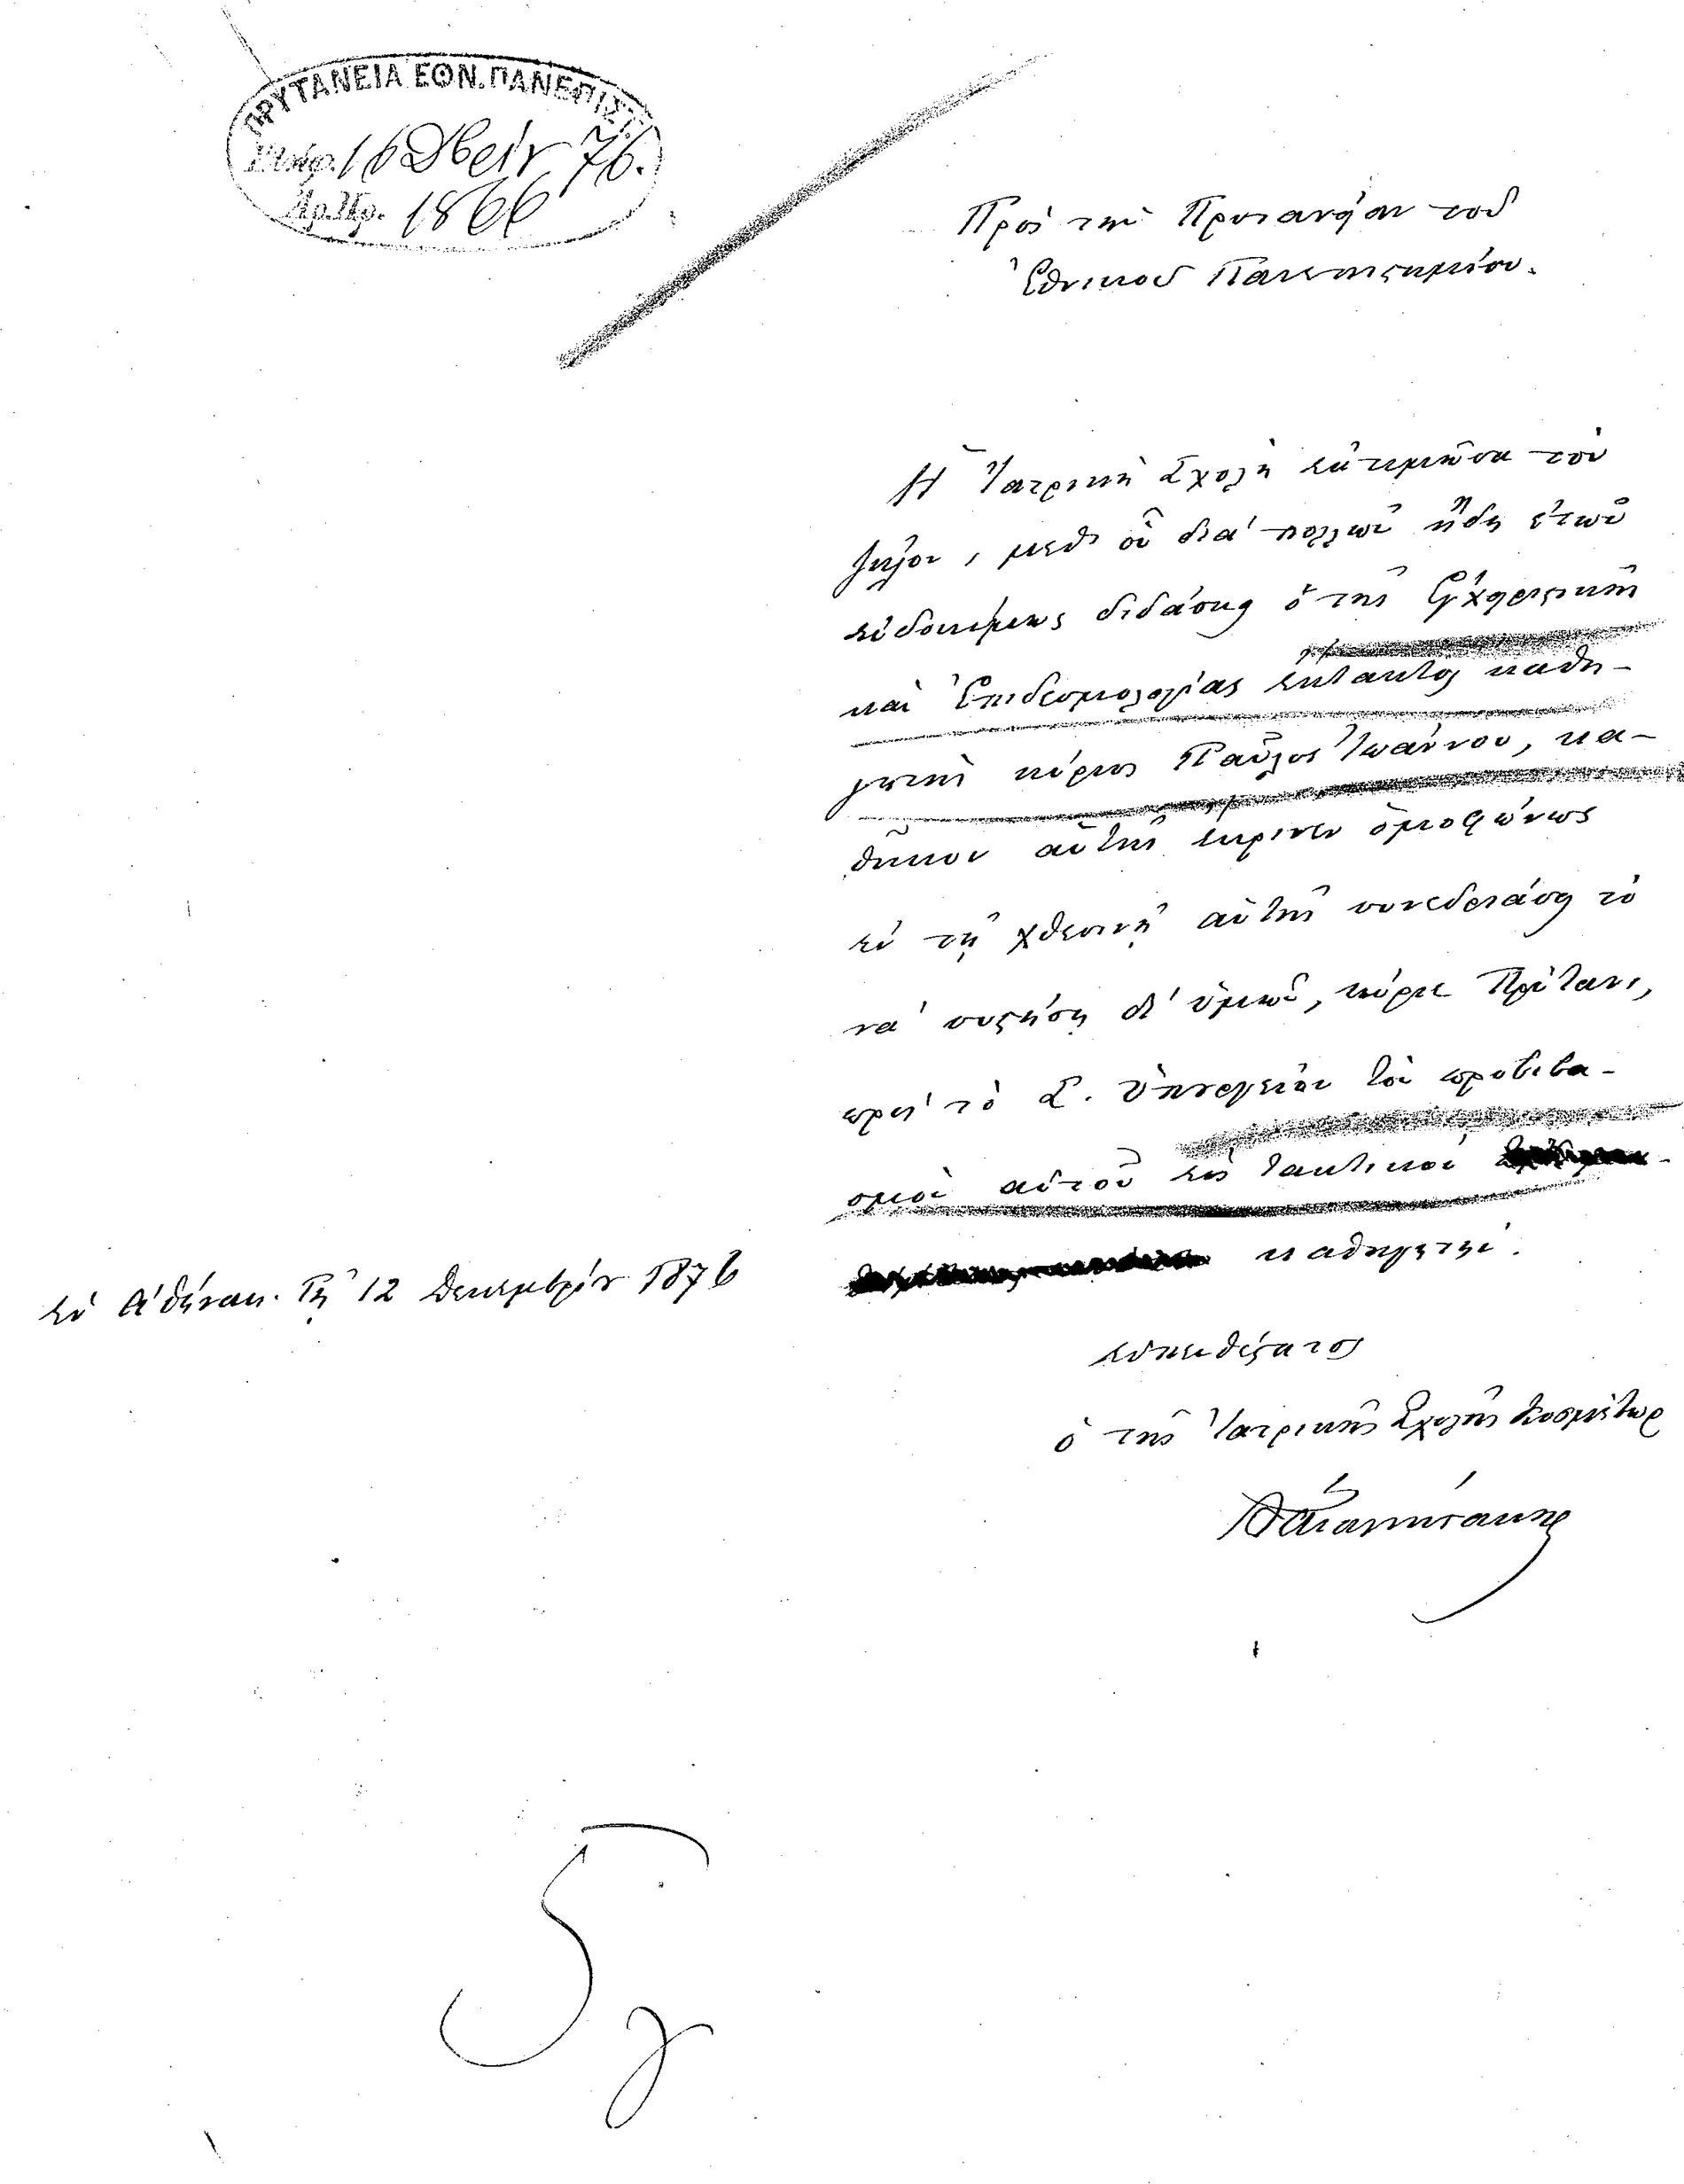 ΠΡΥΤΑΝΕΙΑ ΕΘΝ. ΠΑΝΕΠΙΣΤ.
16 Δβρίου 76.
Ἀρ. Πρ. 1866
Πρὸς τὴν Πρυτανείαν τοῦ
Ἐθνικοῦ Πανεπιστημίου.
Ἡ Ἰατρικὴ Σχολὴ ἐκτιμῶσα τὸν
ζῆλον, μεθ' οὗ διὰ πολλῶν ἤδη ἐτῶν
εὐδοκίμως διδάσκει ὁ τῆς Ἐγχειριστικῆς
καὶ Ἐπιδεσμολογίας ἔκτακτος καθη-
γητὴς κύριος Παῦλος Ἰωάννου, κα-
θῆκον αὐτῆς ἔκρινεν ὁμοφώνως
ἐν τῇ χθεσινῇ αὐτῆς συνεδριάσει τὸ
νὰ συστήσῃ δι' ὑμῶν, κύριε Πρύτανι,
πρὸς τὸ Σ. Ὑπουργεῖον τὸν προβιβα-
σμὸν αὐτοῦ εἰς τακτικὸν
καθηγητήν.
Ἐν Ἀθήναις τῇ 12 Δεκεμβρίου 1876
εὐπειθέστατος
ὁ τῆς Ἰατρικῆς Σχολῆς Κοσμήτωρ
5
γ